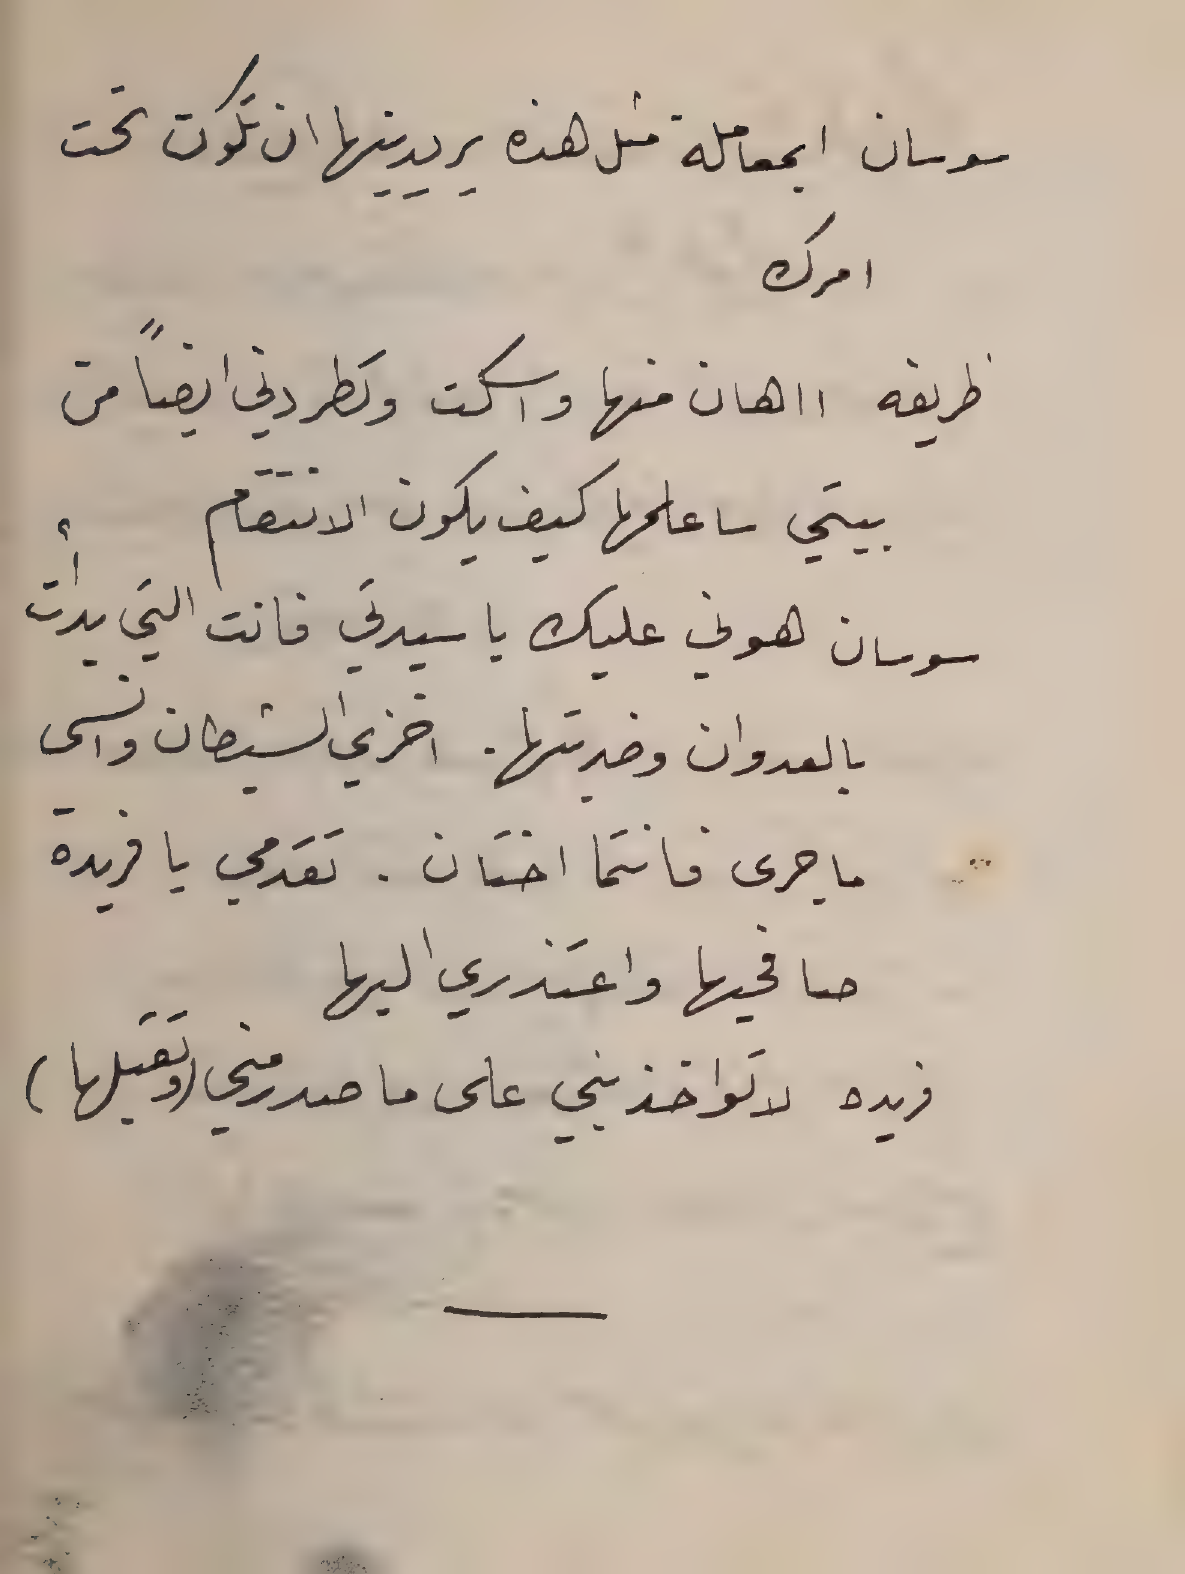 سوسان ابمعاملة مثل هذه يريدينها ان تكون تحت
امرك
ظريفه ااهان منها واسكت وتطردني ايضاً من
بيتي ساعلمها كيف يكون الانتقام
سوسان هوني عليك يا سيدتي فانت التي بدأت
بالعدوان وضربتها. اخزي الشيطان وانسى
ما جرى فانتما اختان . تقدمي يا فريدة
صافحيها واعتذري اليها
فريده لا تواخذيني على ما صدر مني (وتقبلها)